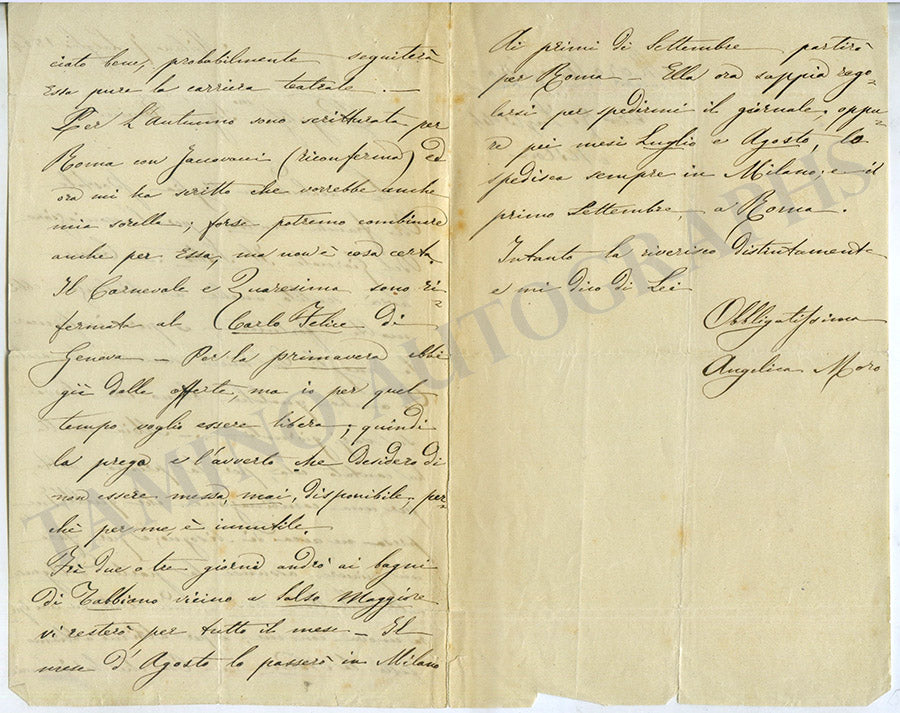 ciato bene, probabilmente seguiterà
Essa pure la carriera teatrale. —
Per L'Autunno sono scritturata per
Roma con Jacovacci (riconferma) ed
ora mi ha scritto che vorrebbe anche
mia sorella; forse potremo combinare
anche per Essa, ma non è cosa certa.
Il Carnevale e Quaresima sono ri-
fermata al Carlo Felice di
Genova — Per la primavera ebbi
già delle offerte, ma io per quel
tempo voglio essere libera; quindi
la prego e l'avverto che desidero di
non essere messa, mai, disponibile, per-
chè per me è innutile.
Frà due o tre giorni andrò ai bagni
di Tabbiano vicino a Salso Maggiore
vi resterò per tutto il mese — Il
mese d'Agosto lo passerò in Milano
Ai primi di Settembre partirò
per Roma — Ella ora sappia rego-
larsi per spedirmi il giornale, oppu-
re pei mesi Luglio e Agosto, lo
spedisca sempre in Milano; e il
primo Settembre, a Roma.
Intanto la riverisco distintamente
e mi dico di Lei
Obbligatissima
Angelica Moro
TAMINO AUTOGRAPHS